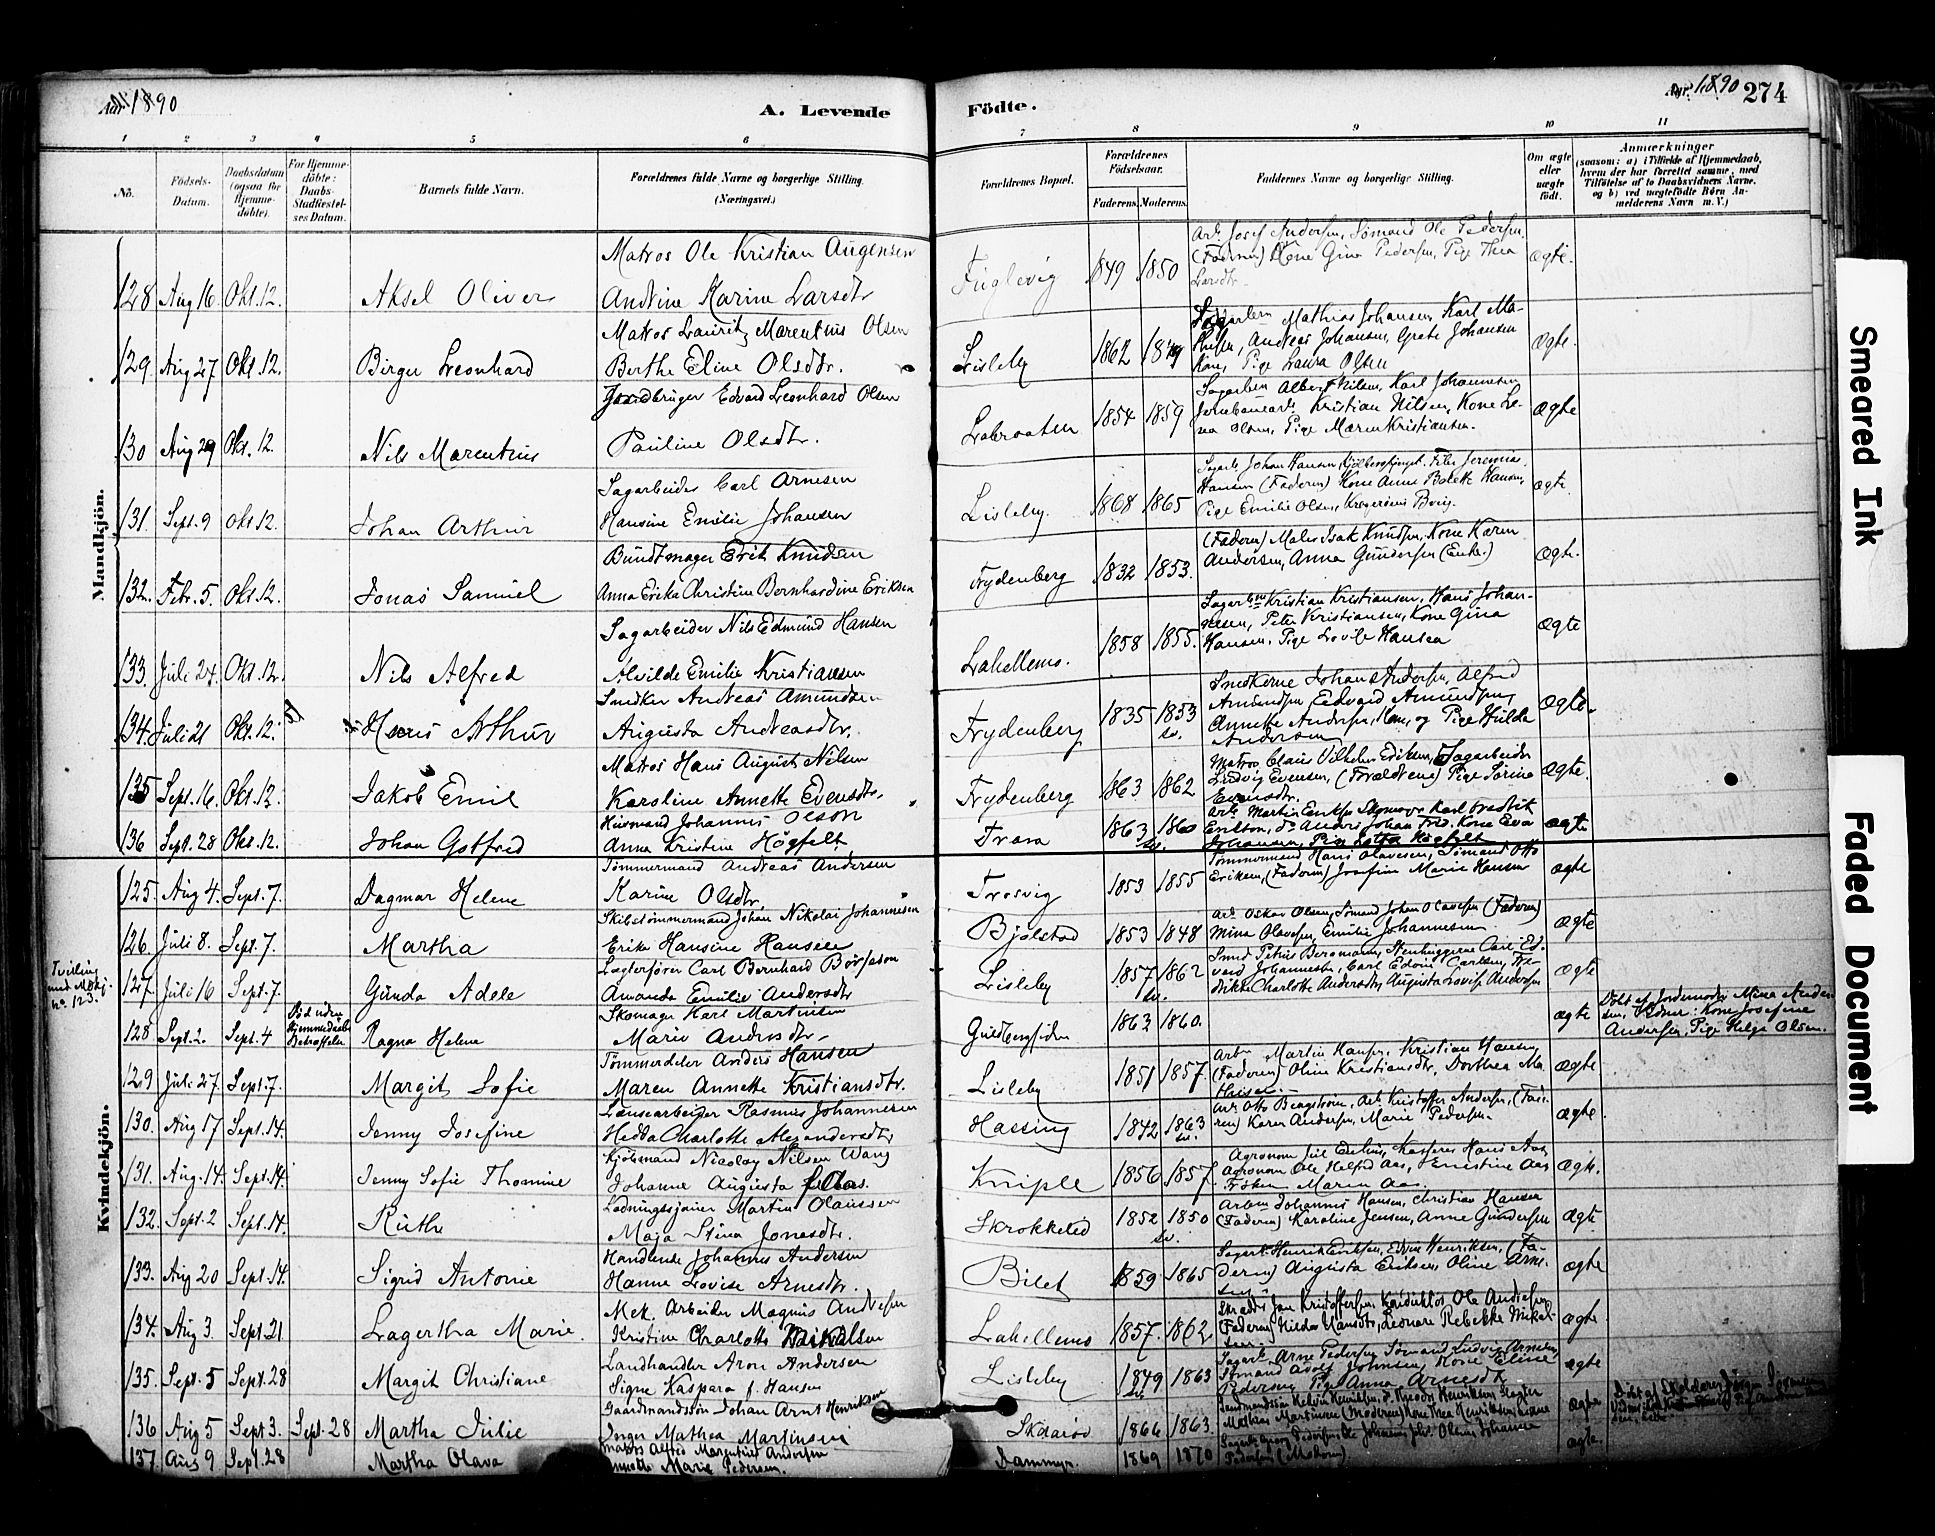 Aar 1890
A. Levende
Födte.
Aar 1890 274
1 2 3 4 5 6 7 8 9 10 11
No.
Födsels-Datum.
Daabsdatum (ogsaa for Hjemme-döbte).
For Hjemme-döbte: Daabs-Stadfæstel-ses Datum.
Barnets fulde Navn.
Forældrenes fulde Navne og borgerlige Stilling. (Næringsvei.)
Forældrenes Bopæl.
Forældrenes Födselsaar.
Faderens. Moderens.
Faddernes Navne og borgerlige Stilling.
Om ægte eller uægte födt.
Anmærkninger
(saasom: a) i Tilfælde af Hjemmedaab,
hvem der har forrettet samme, med
Tilföielse af to Daabsvidners Navne,
og b) ved uægtefödte Börn An-
melderens Navn m. V.)
Mandkjön.
128 Aug 16. Okt. 12. Aksel Oliver
Matros Ole Kristian Augensen
Andrine Karine Larsdtr
Fuglevig 1849 1850
Arb. Josef Andersen, Sømand Ole Pedersen,
(Faderen) Kone Gina Pedersen, Pige Thea
Larsdtr.
ægte.
129. Aug 27 Okt. 12. Birger Leonhard
Matros Lauritz Marentius Olsen
Berthe Eline Olsdtr.
Lisleby 1862 1849
Mathias Johansen, Karl Ma-
thisen, Andreas Johansen, Grete Johansen
Kone, Pige Laura Olsen
ægte.
130 Aug 29 Okt. 12. Nils Marentius
Jordbruger Edvard Leonhard Olsen
Pauline Olsdtr.
Labraaten 1854 1859
Sagarben Albert Nilsen, Karl Johannesen,
Jernbanearb. Kristian Nilsen, Kone Le-
na Olsen, Pige Maren Kristiansen.
ægte
131. Sept. 9 Okt. 12. Johan Arthur
Sagarbeider Carl Arnesen
Hansine Emilie Johansen
Lisleby. 1868 1865
Sagarb. Johan Hansen, Jeremias
Hansen (Faderen) Kone Anne Bolette Hansen,
Pige Emilie Olsen,
ægte.
132. Febr. 5. Okt. 12. Jonas Samuel
Bundtmager Erik Knudsen
Anna Erika Christine Bernhardine Eriksen
Frydenberg 1832 1853.
(Faderen) Maler Isak Knudsen, Kone Karen
Andersen, Anna Gundersen (Enke.)
ægte.
133. Juli 24. Okt. 12. Nils Alfred
Sagarbeider Nils Edmund Hansen
Alvilde Emilie Kristiansen
Lahellemo. 1858 1855.
Sagarbne Kristian Kristiansen, Hans Johan-
nesen, Peter Kristiansen, Kone Gina
Hansen, Pige Lovise Hansen
ægte
134. Juli 21 Okt. 12. Hans Arthur
Snedker Andreas Amundsen
Augusta Andreasdtr.
Frydenberg 1835 1853 sv.
Snedkerne Johans Andersen, Alfred
Amundsen, Edvard Amundsen,
Annette Andersen, Kone, og Pige Hulda
Andersen
ægte.
135 Sept. 16. Okt. 12. Jakob Emil
Matros Hans August Nilsen
Karoline Annette Evensdtr.
Frydenberg 1863 1862
Matros Claus Vilhelm Eriksen, Sagarbeider
Ludvig Evensen, (Forældrene) Pige Sörine
Evensdtr.
ægte.
136 Sept. 28 Okt. 12. Johan Gotfred
Husmand Johannes Olson
Anna Kristine Högfelt
Træra 1863 1860 sv.
Arb. Martin Eriksen, Skomager Karl Fredrik
Erikson, do Anders Johan Kone Eva
Johansen, Pige Lotta Högfelt
ægte
Kvindekjön.
125. Aug 4. Sept. 7. Dagmar Helene
Tömmermand Andreas Andersen
Karine Olsdtr.
Trosvig 1853 1855
Tömmermand Hans Olavesen, Sömand Otto
Eriksen, (Faderen) Josefine Marie Hansen
ægte
126. Juli 8. Sept. 7. Martha
Skibstömmermand Johan Nikolai Johannesen
Erika Hansine Hansen
Bjölstad 1853 1848
Arb. Oskar Olsen, Sömand Johan Olavesen (Faderen)
Mina Olavesen, Emilie Johannesen
ægte
Tvilling
med Mdkj.
no. 123.
127. Juli 16 Sept. 7. Gunda Adele
Lægterförer Carl Bernhard Börjeson
Amanda Emilie Andersdtr
Lisleby 1857 sv. 1862
Smed Petrus Bergmann, Stenhuggerne Carl Ed-
vard Johannesen, Carl Edvin Carlsen, Fre-
drikke Charlotte Andersdtr, Augusta Lovise Andersen
ægte
128 Sept. 2. Sept. 4 Död uden Hjemmedaabs Bekræftelse Ragna Helene
Skomager Karl Martinsen
Marie Andersdtr.
Guldbergsiden 1863 1860.
ægte
Döbt af Jordemoder Mina Ander-
sen, Vidner: Kone Josefine
Andersen, Pige Helga Olsen.
129 Juli 27. Sept. 7. Margit Sofie
Tömmerdeler Anders Hansen
Maren Annette Kristiansdtr.
Lisleby 1851 1857
Arbn Martin Hansen, Kristian Hansen,
(Faderen) Oline Kristiansdtr, Dorthea Ma-
thisen
ægte
130. Aug 17 Sept. 14. Jenny Josefine
Lænsearbeider Rasmus Johannesen
Hedda Charlotte Alexandersdtr
Hassing 1842 1863 sv.
Arb. Otto Bengström, Arb. Kristoffer Andersen, (Fade-
ren) Karen Andersen, Marie Pedersen.
ægte.
131. Aug. 14. Sept. 14. Jenny Sofie Thomine
Kjöbmand Nicolay Nilsen Wang
Johanne Augusta f. Aas.
Kniple 1856 1857.
Agronom Juel Kasserer Hans Aas,
Agronom Ole Aas, Ernestine Aas
Fröken Maren Aas.
ægte.
132. Sept. 2 Sept. 14. Ruth
Ladningsjouer Martin Olaussen
Maja Stina Jonasdtr.
Skrokkelid 1852 1850 sv.
Arbn Johannes Hansen, Christian Hansen
(Faderen) Karoline Jensen, Anne Gundersen
ægte
133. Aug 20 Sept. 14. Sigrid Antonie
Handlende Johannes Andersen
Hanne Lovise Arnesdtr.
Bilet 1859 1865
Sagarb. Henrik Eriksen, Edvin Henriksen, (Fa-
deren) Augusta Eriksen, Oline Arne-
sen
ægte
134. Aug 3. Sept 21 Lagertha Marie.
Mek. Arbeider Magnus Andresen
Kristine Charlotte Mikalsen
Lahellemo 1857. 1862.
Skrædder Jan Kristoffersen, Konduktör Ole Andresen
(Faderen) Hilda Hansdtr, Leonore Rebekke Mikal-
sen
ægte.
135. Sept. 5 Sept. 28 Margit Christiane
Landhandler Aron Andersen
Signe Kaspara f. Hansen
Lisleby 1849 sv. 1863
Sagarb. Arne Pedersen, Sömand Ludvig Arnesen,
Sömand Adolf Johnsen, Kone Eline
Pedersen, Pige Anna Arnesdtr
ægte
136 Aug 5 Sept 3. Sept. 28 Martha Julie
Gaardmandssön Johan Arnt Henriksen
Inger Mathea Martinsen
Skaaröd 1866 1863.
Mathias Martinsen (Moderen) Kone Thea Henriksen,
ægte
Döbt af Skolelærer
137. Aug 9 Sept. 28 Martha Olava
Matros Alfred Marentius Andersen
Annette Marie Pedersen.
Dammyr. 1869 1870
Sagarb. Georg Pedersen,
Pedersen (Moderen)
ægte.
Smeared Ink
Faded Document